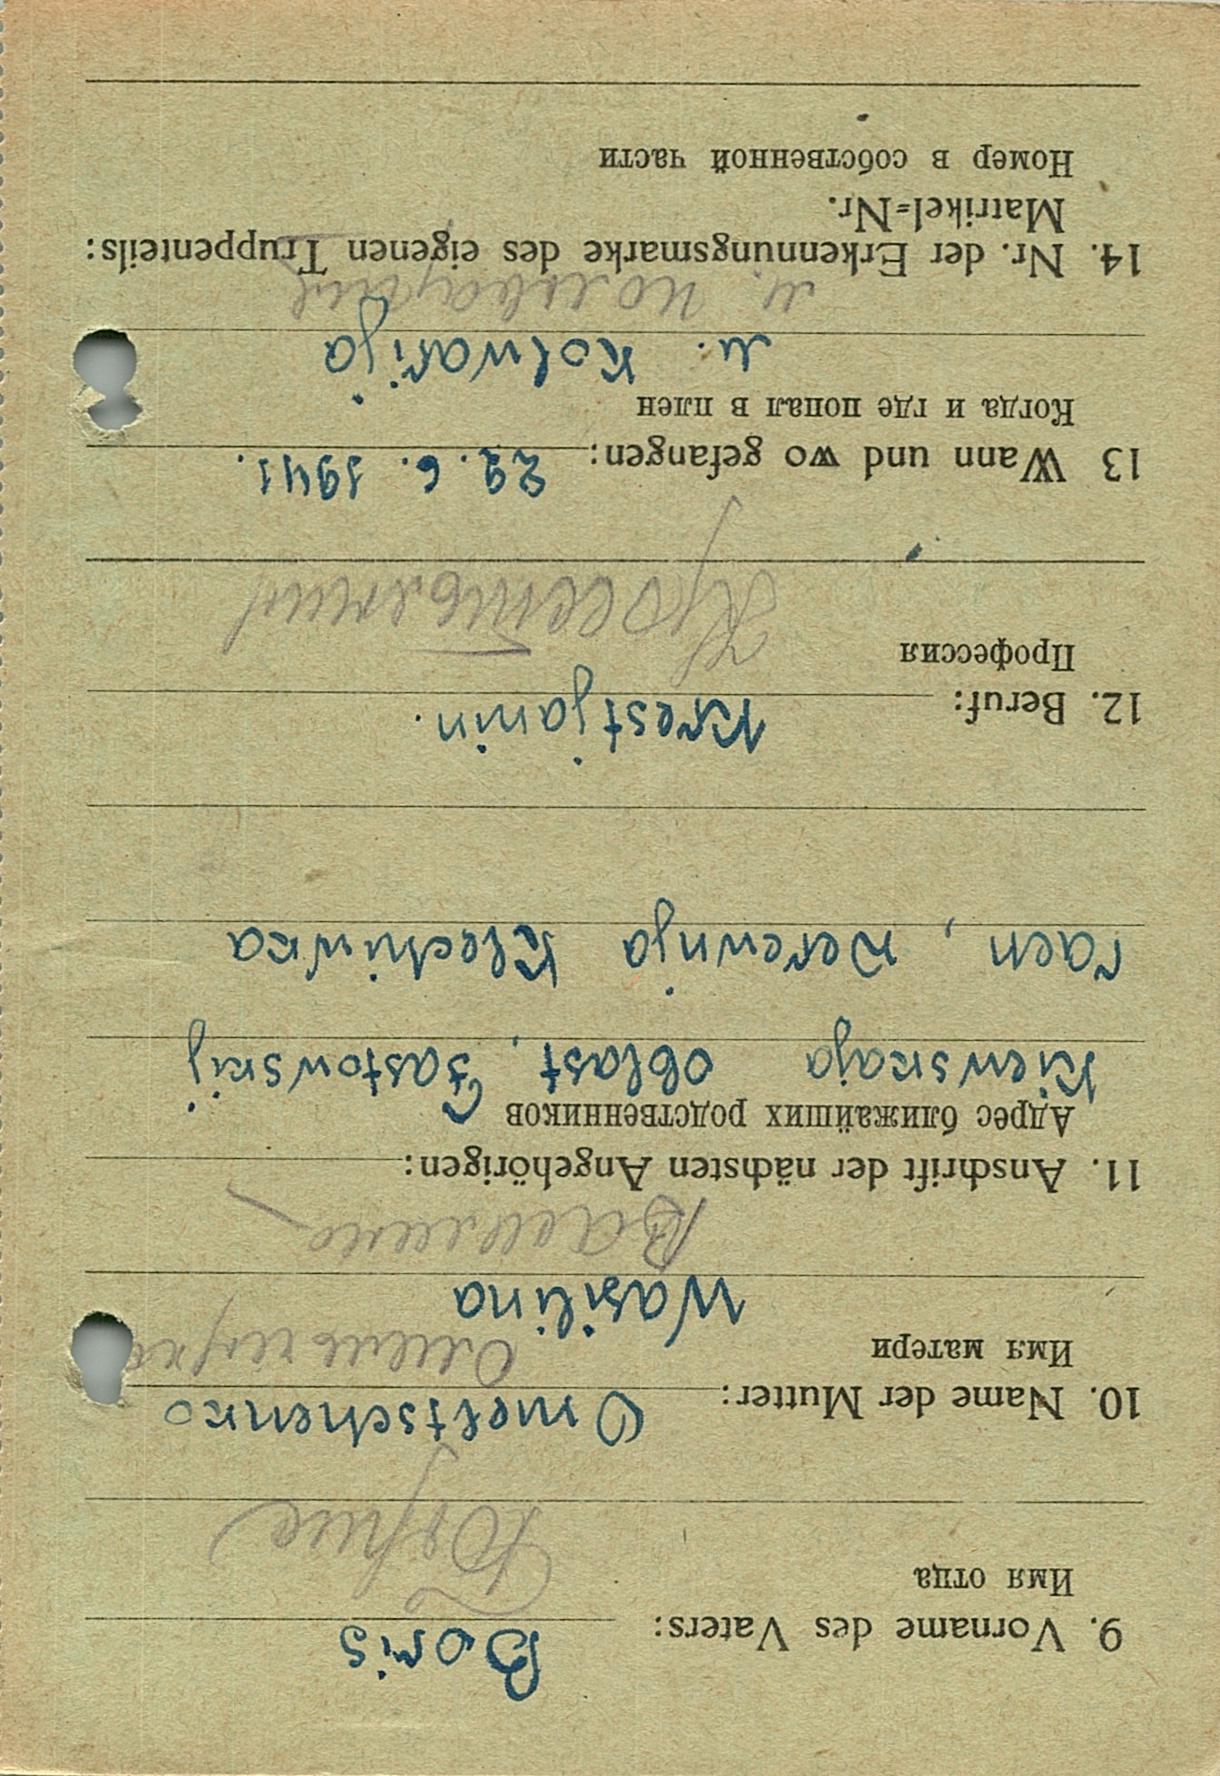 9. Vorname des Vaters: Boris
Имя отца
Борис
10. Name der Mutter: Omeltschenko
Имя матери Омельченко
Wasilina
Василина
11. Anschrift der nächsten Angehörigen:
Адрес ближайших родственников
Kiewskaja oblast, Fastowskij
raen, Derewnja Klechiwka
12. Beruf: Krestjanin.
Профессия
Крестьянин
13 Wann und wo gefangen: 22. 6. 1941.
Когда и где попал в плен
м. Kolwarija
м. Колвария
14. Nr. der Erkennungsmarke des eigenen Truppenteils:
Matrikel=Nr.
Номер в собственной части